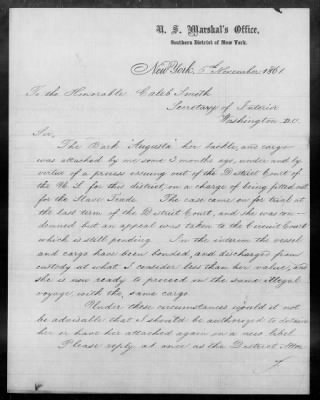 U. S. Marshal's Office,
Southern District of New York.
New York, 5th November 1861
To the Honorable Caleb Smith
Secretary of Interior
Washington D.C.
Sir,
The Bark "Augusta" her tackle, and cargo
was attached by me some 3 months ago, under and by
virtue of a process issuing out of the District Court of
the U.S. for this district, on a charge of being fitted out
for the Slave Trade. The case came on for trial at
the last term of the District Court, and she was con-
demned but an appeal was taken to the Circuit Court
which is still pending. In the interim the vessel
and cargo have been bonded, and discharged from
custody at what I consider less than her value, and
she is now ready to proceed on the same illegal
voyage with the same cargo.
Under these circumstances would it not
be advisable that I should be authorized to detain
her or have her attached again on a new libel
Please reply at once as the District Attor